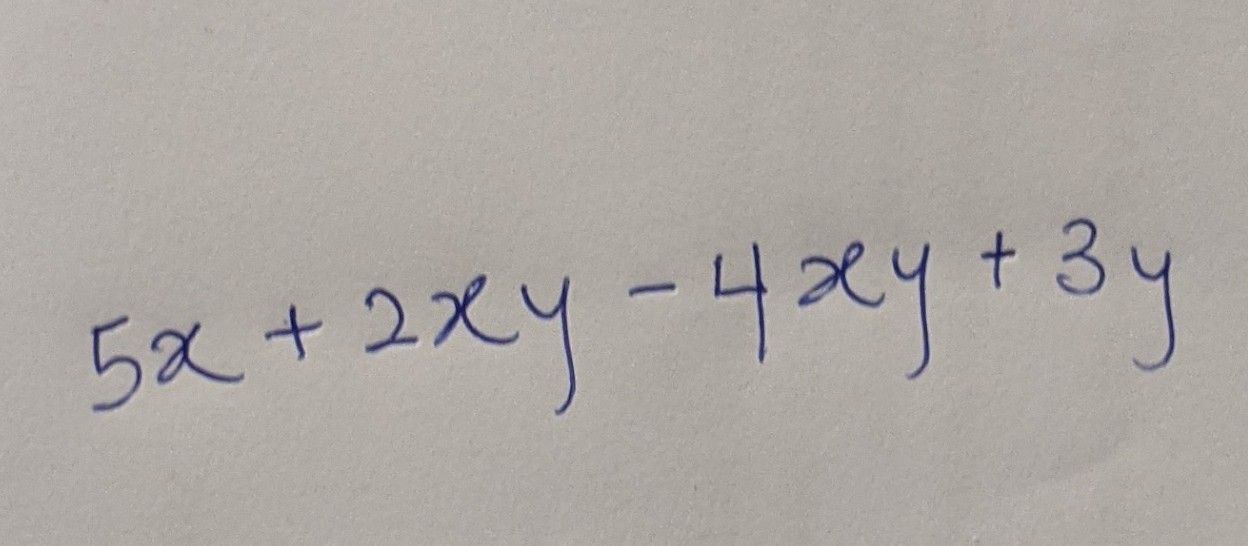 5x + 2xy - 4xy + 3y